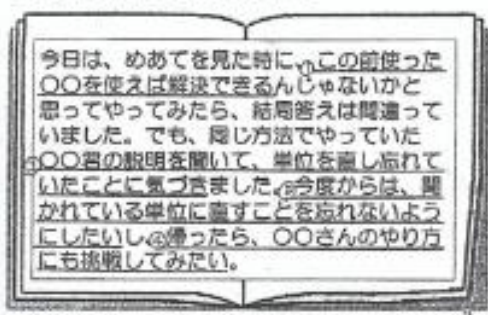 今日は、めあてを見た時に①この前使った
〇〇を使えば解決できるんじゃないかと
思ってやってみたら、結局答えは間違って
いました。でも、同じ方法でやっていた
②〇〇君の説明を聞いて、単位を直し忘れて
いたことに気づきました。③今度からは、聞
かれている単位に直すことを忘れないよう
にしたいし④帰ったら、〇〇さんのやり方
にも挑戦してみたい。